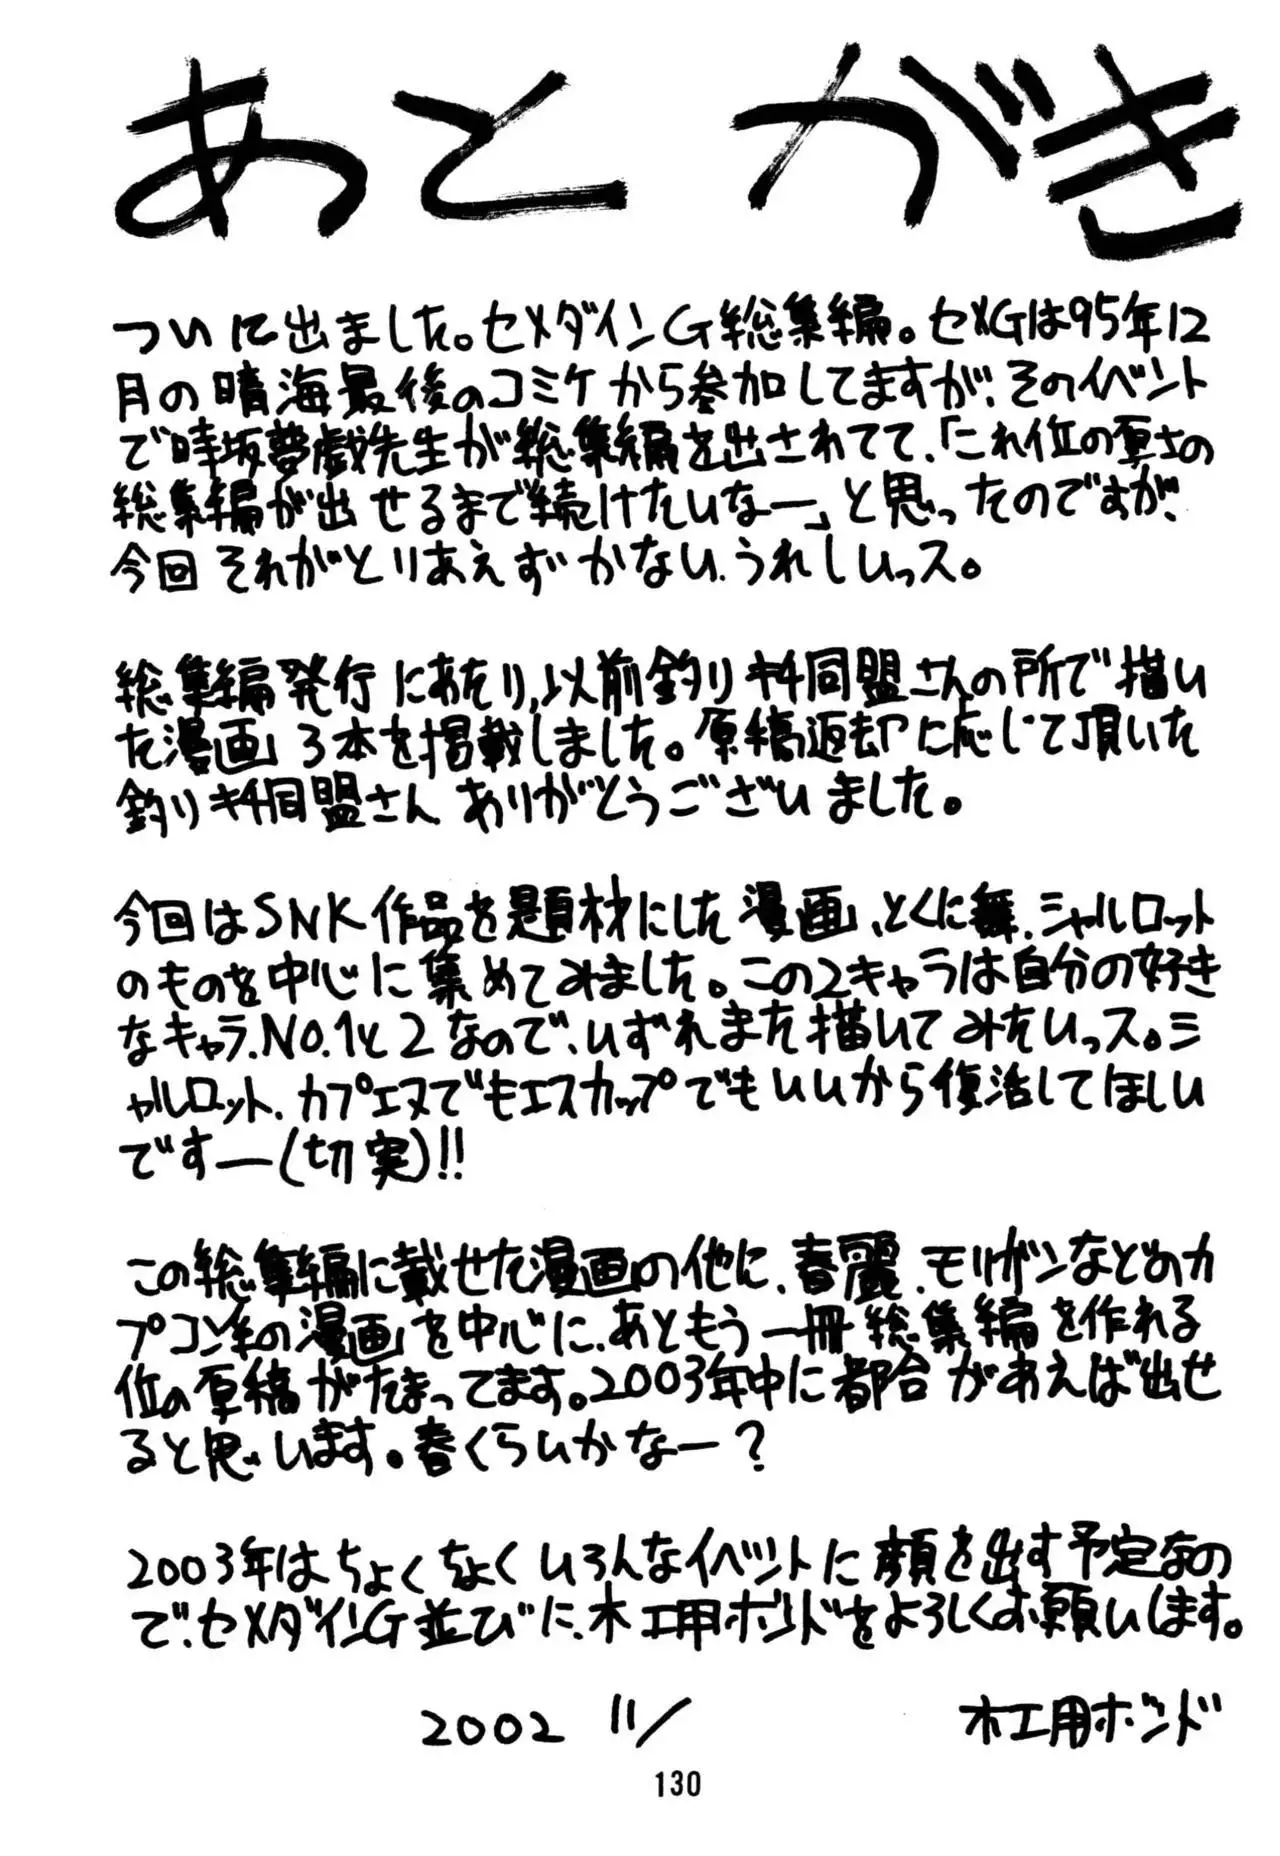 あとがき
ついに出ました。セメダインG総集編。セメGは95年12
月の晴海最後のコミケから参加してますが、そのイベント
で時坂夢戯先生が総集編を出されてて、「これ位の厚さの
総集編が出せるまで続けたいなー」と思ったのですが、
今回それがとりあえずかない、うれしいっス。
総集編発行にあたり、以前釣りキチ同盟さんの所で描い
た漫画、3本を掲載しました。原稿返却に応じて頂いた
釣りキチ同盟さんありがとうございました。
今回はSNK作品を題材にした漫画、とくに舞、シャルロット
のものを中心に集めてみました。この2キャラは自分の好き
なキャラ、No.1と2なので、いずれまた描いてみたいっス。シ
ャルロット、カプエヌでもエスカップでもいいから復活してほしい
ですー(切実)!!
この総集編に載せた漫画の他に、春麗、モリガンなどのカ
プコン系の漫画を中心に、あともう一冊総集編を作れる
位の原稿がたまってます。2003年中に都合があえば出せ
ると思います。春くらいかなー?
2003年はちょくちょくいろんなイベントに顔を出す予定なの
で、セメダインG並びに、木工用ボンドをよろしくお願いします。
2002 11/
木工用ボンド
130